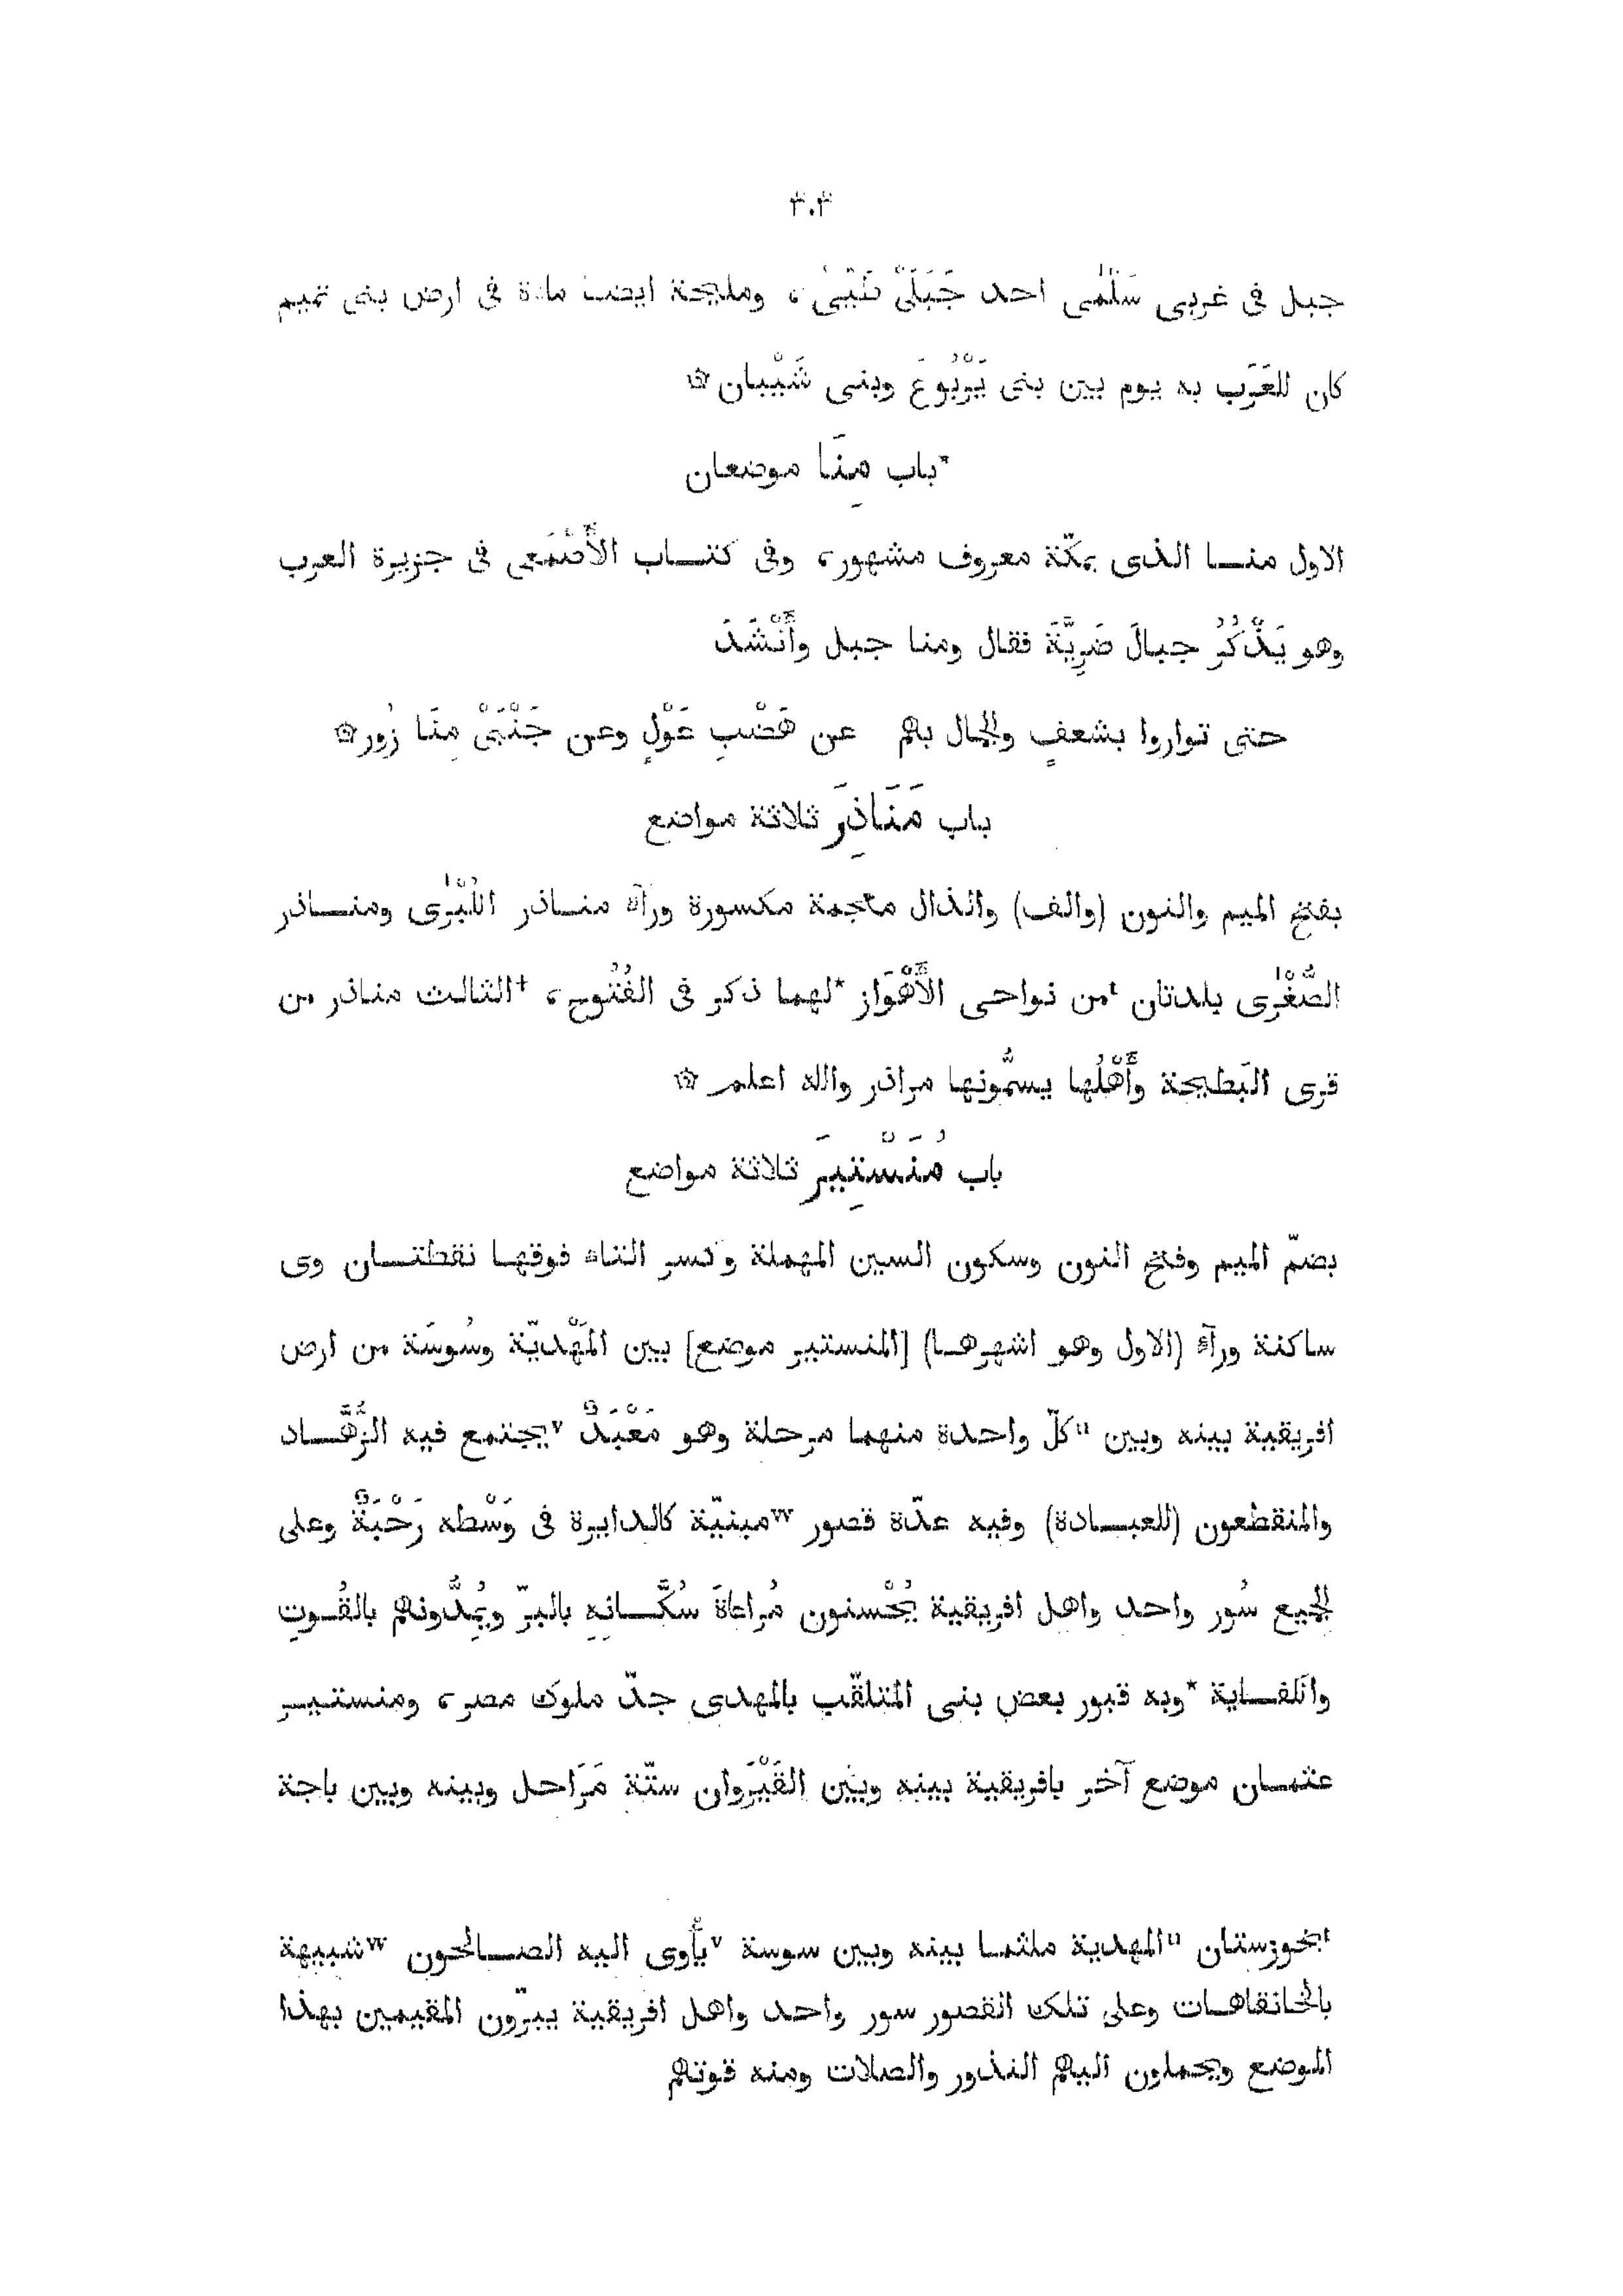 ٤٠٣
جبل فى غربى سَلْمٰى احد جَبَلَىْ طَيّىء، ومليحة ايضا ماءة فى ارض بنى تميم
كان للعَرَب به يوم بين بنى يَرْبُوعَ وبنى شَيْبان ۞
*باب مِنَا موضعان
الاول منا الذى بمكّة معروف مشهور، وفى كتاب الأَصْمَعى فى جزيرة العرب
وهو يَذْكُرُ جبالَ ضَرِيَّةَ فقال ومنا جبل وأَنْشَدَ
حتى تواروا بشعفٍ والجمال بهم عن هَضْبِ غَوْلٍ وعن جَنْبَىْ مِنَا زُور ۞
باب مَنَاذِرَ ثلاثة مواضع
بفتح الميم والنون (والف) والذال معجمة مكسورة ورآء مناذر الكُبْرٰى ومناذر
الصُّغْرٰى بلدتان ᵗمن نواحى الأَهْوَاز *لهما ذكر فى الفُتُوح، †الثالث مناذر من
قرى البَطيحة وأَهْلُها يسمُّونها مراذر والله اعلم ۞
باب مُنَسْتِيرَ ثلاثة مواضع
بضمّ الميم وفتح النون وسكون السين المهملة وكسر التاء فوقها نقطتان وى
ساكنة ورآء (الاول وهو اشهرها) [المنستير موضع] بين المَهْديّة وسُوسَة من ارض
افريقية بينه وبين ᵘكلّ واحدة منهما مرحلة وهو مَعْبَدٌ ᵛيجتمع فيه الزُّهَّاد
والمنقطعون (للعبادة) وفيه عدّة قصور ʷمبنيّة كالدايرة فى وَسْطه رَحْبَةٌ وعلى
الجميع سُور واحد واهل افريقية يُحْسنون مُراعاةَ سُكَّانِهِ بالبرّ ويُمِدُّونهم بالقُوتِ
والكفاية *وبه قبور بعض بنى المتلقّب بالمهدى جدّ ملوك مصر، ومنستير
عثمان موضع آخر بافريقية بينه وبين القَيْرَوان ستّة مَرَاحل وبينه وبين باجة
ᵗبخوزستان ᵘالمهدية ملثما بينه وبين سوسة ᵛيأْوى اليه الصالحون ʷشبيهة
بالخانقاهات وعلى تلك القصور سور واحد واهل افريقية يبرّون المقيمين بهذا
الموضع ويحملون اليهم النذور والصلات ومنه قوتهم